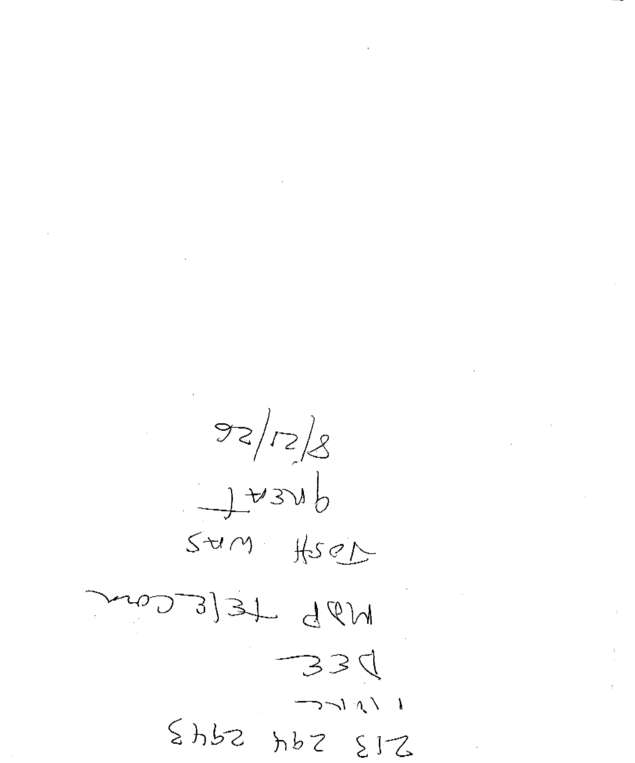 213 294 2943
DEE
MDP TELECOM
JOSH WAS
great
8/21/26